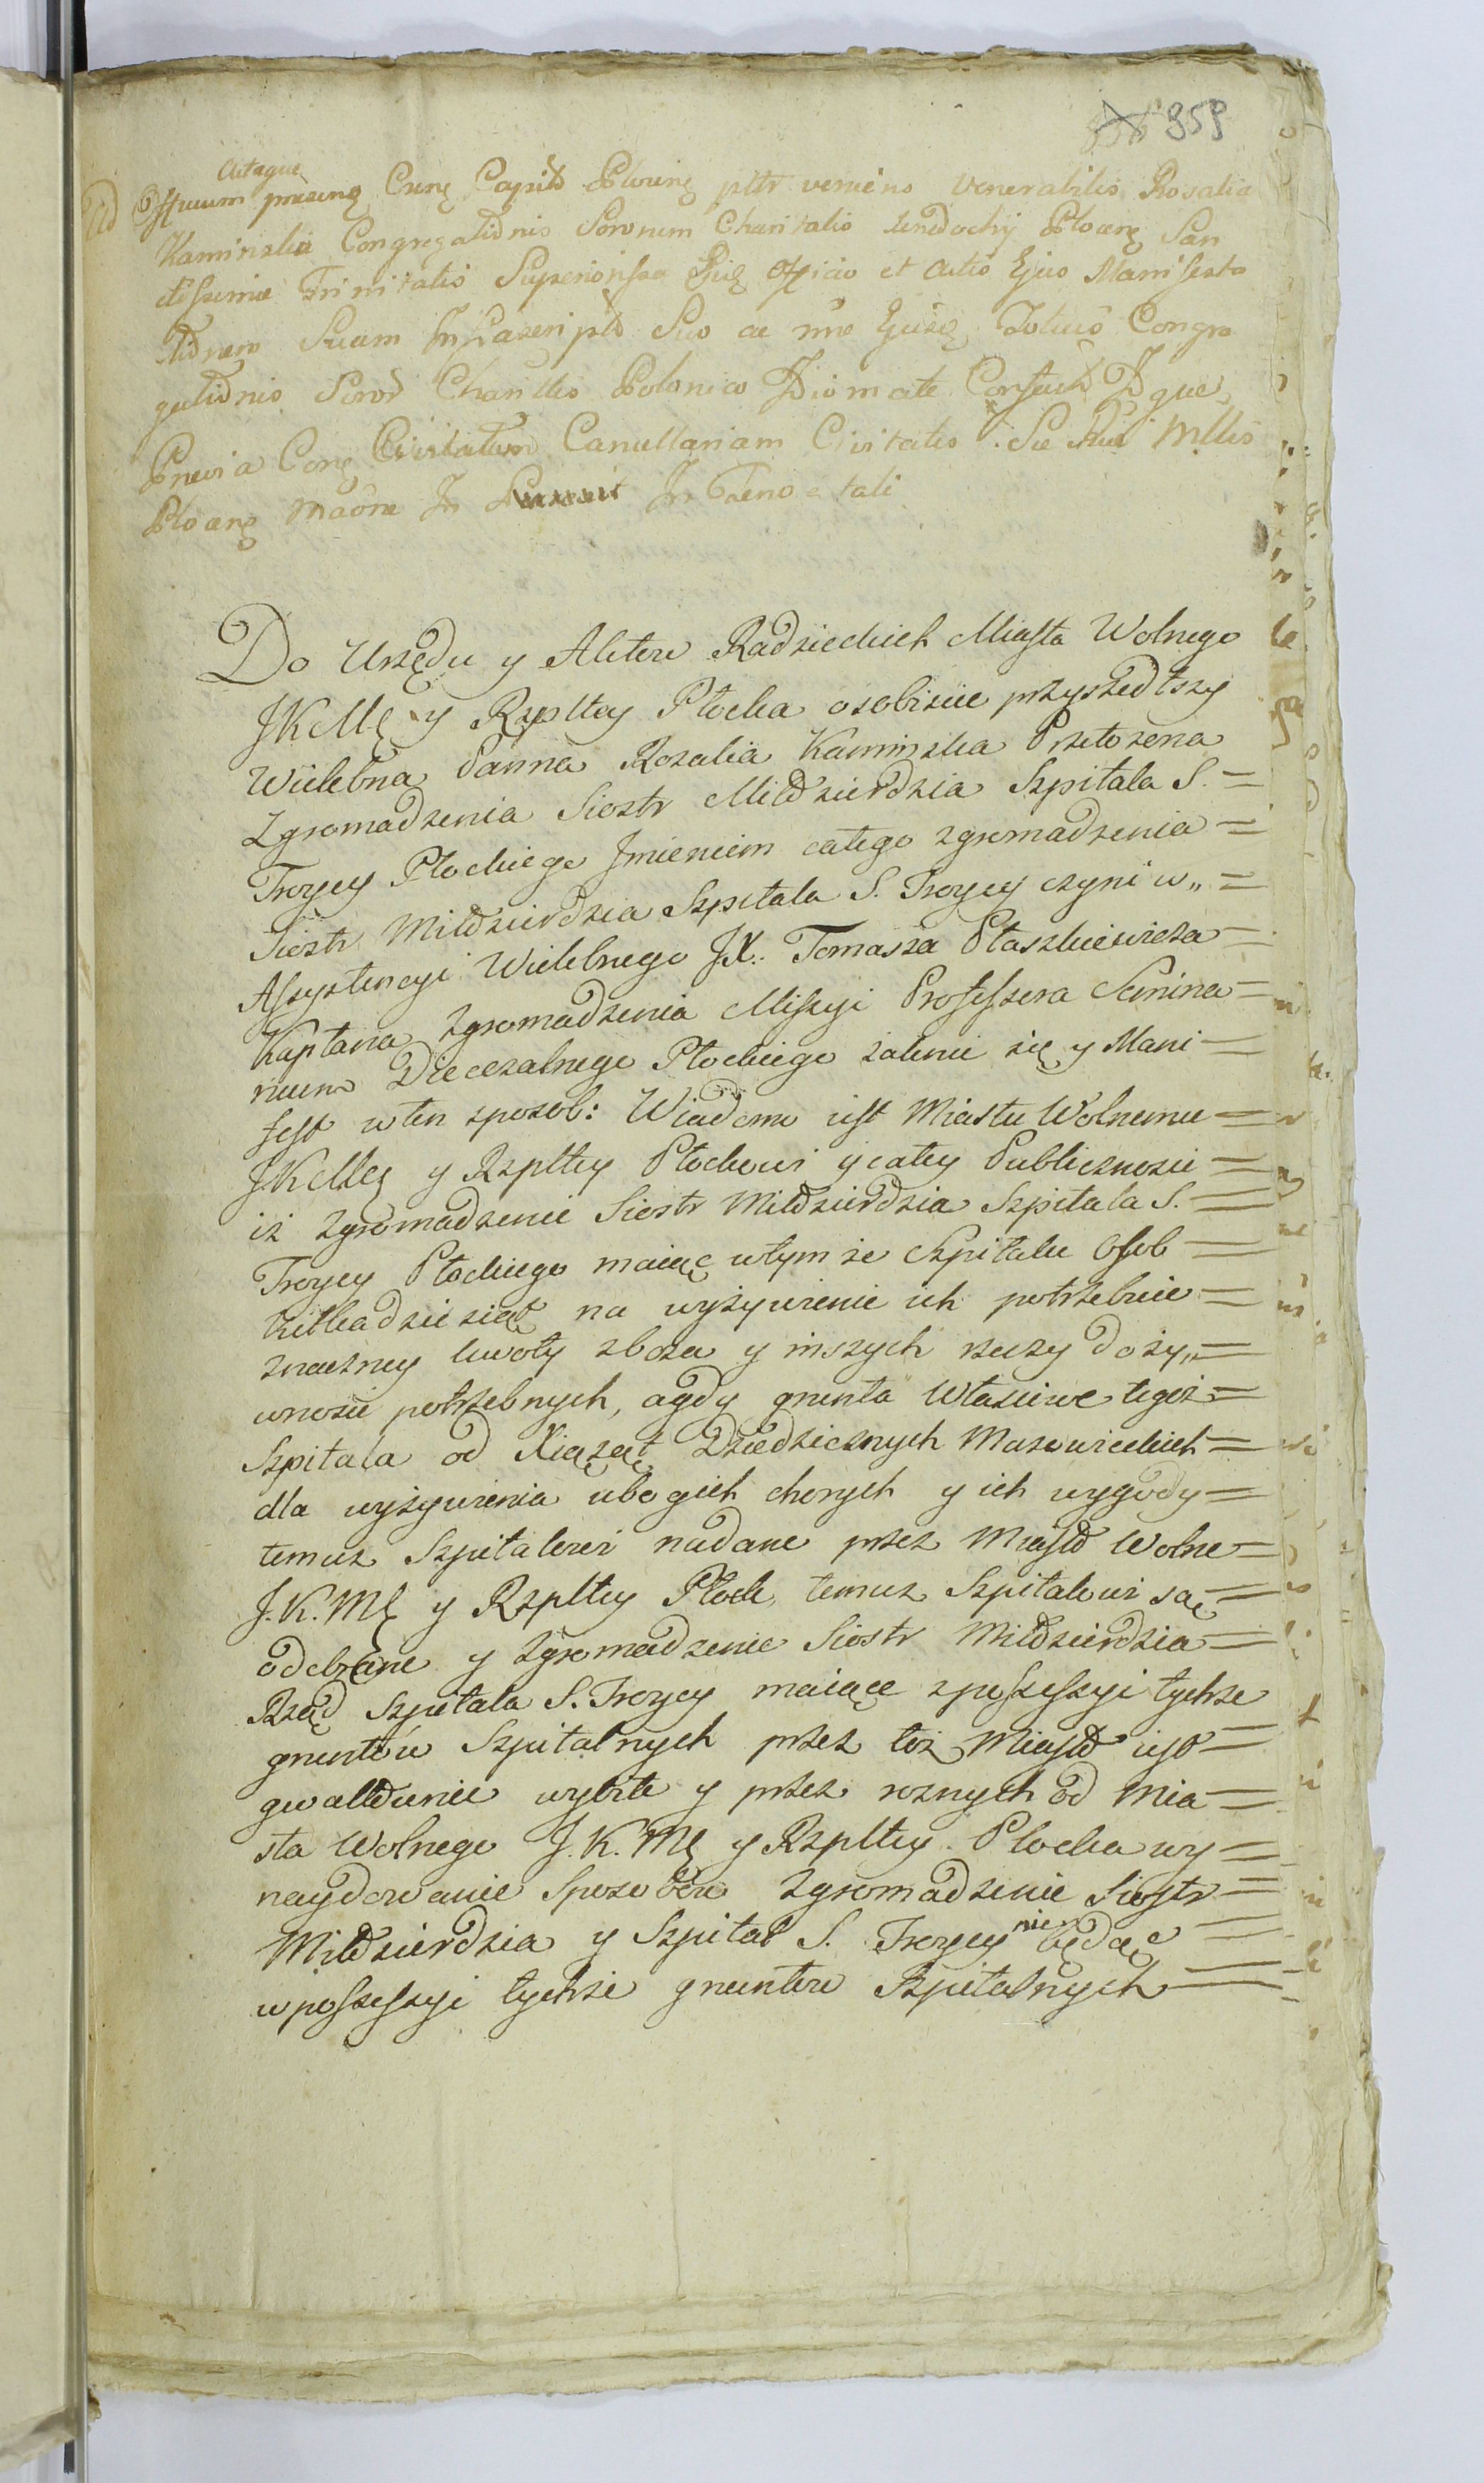 959
Actaque
Ad Officium presens Cons. Capitlis Plocens. pltr veniens Venerabilis Rosalia
Kaminska Congregationis Sororum Charitatis Xenodochij Plocens. San
ctissimæ Trinitatis Superiorissa Ejusq. Officio et Actis Ejus Manifesta
tionem Suam In Scripto Suo ac nne Ejusq. Totius Congre
gationis Soror Charittis Polonico Idiomate
Previa Cancellariam Civitatis
Plocens.
Do Urzędu y Aktow Radzieckich Miasta Wolnego
JKMci y Rzpltey Płocka osobiscie przyszedłszy
Wielebna Panna Rozalia Kaminska Przełożona
Zgromadzenia Siostr Miłosierdzia Szpitala S. =
Troycy Płockiego Jmieniem całego zgromadzenia =
Siostr Miłosierdzia Szpitala S. Troycy czyni w,, =
Assystencyi Wielebnego JX. Tomasza Ptaszkiewicza =
Kapłana Zgromadzenia Missyi Professora Semina =
rium Diecezalnego Płockiego żalenie się y Mani =
fest w ten sposob: Wiadomo iest Miastu Wolnemu =
JKMci y Rzpltey Płockowi y całey Publicznosci =
iż zgromadzenie Siostr Miłosierdzia Szpitala S. =
Troycy Płockiego maiąc w tym że Szpitalu Osob =
kilkadziesiąt na wyżywienie ich potrzebuie =
znaczney kwoty zboża y inszych rzeczy do ży,, =
wnosci potrzebnych, a gdy grunta Własciwe tegoż =
Szpitala od Xiążąt Dziedzicznych Mazowieckich =
dla wyżywienia ubogich chorych y ich wygody =
temuz Szpitalowi nadane przez Miasto Wolne =
J.K.Mci y Rzpltey Płock temuz Szpitalowi są =
odebrane y Zgromadzenie Siostr Miłosierdzia =
Rząd Szpitala S. Troycy maiące z possessyi tychże
gruntów Szpitalnych przez toż Miasto iest =
gwałtownie wybite y przez roznych od Mia =
sta Wolnego J.K.Mci y Rzpltey Płocka wy =
naydowanie Sposobow Zgromadzenie Siostr =
Miłosierdzia y Szpital S. Troycy nie będąc =
w possessyi tychże gruntow Szpitalnych =